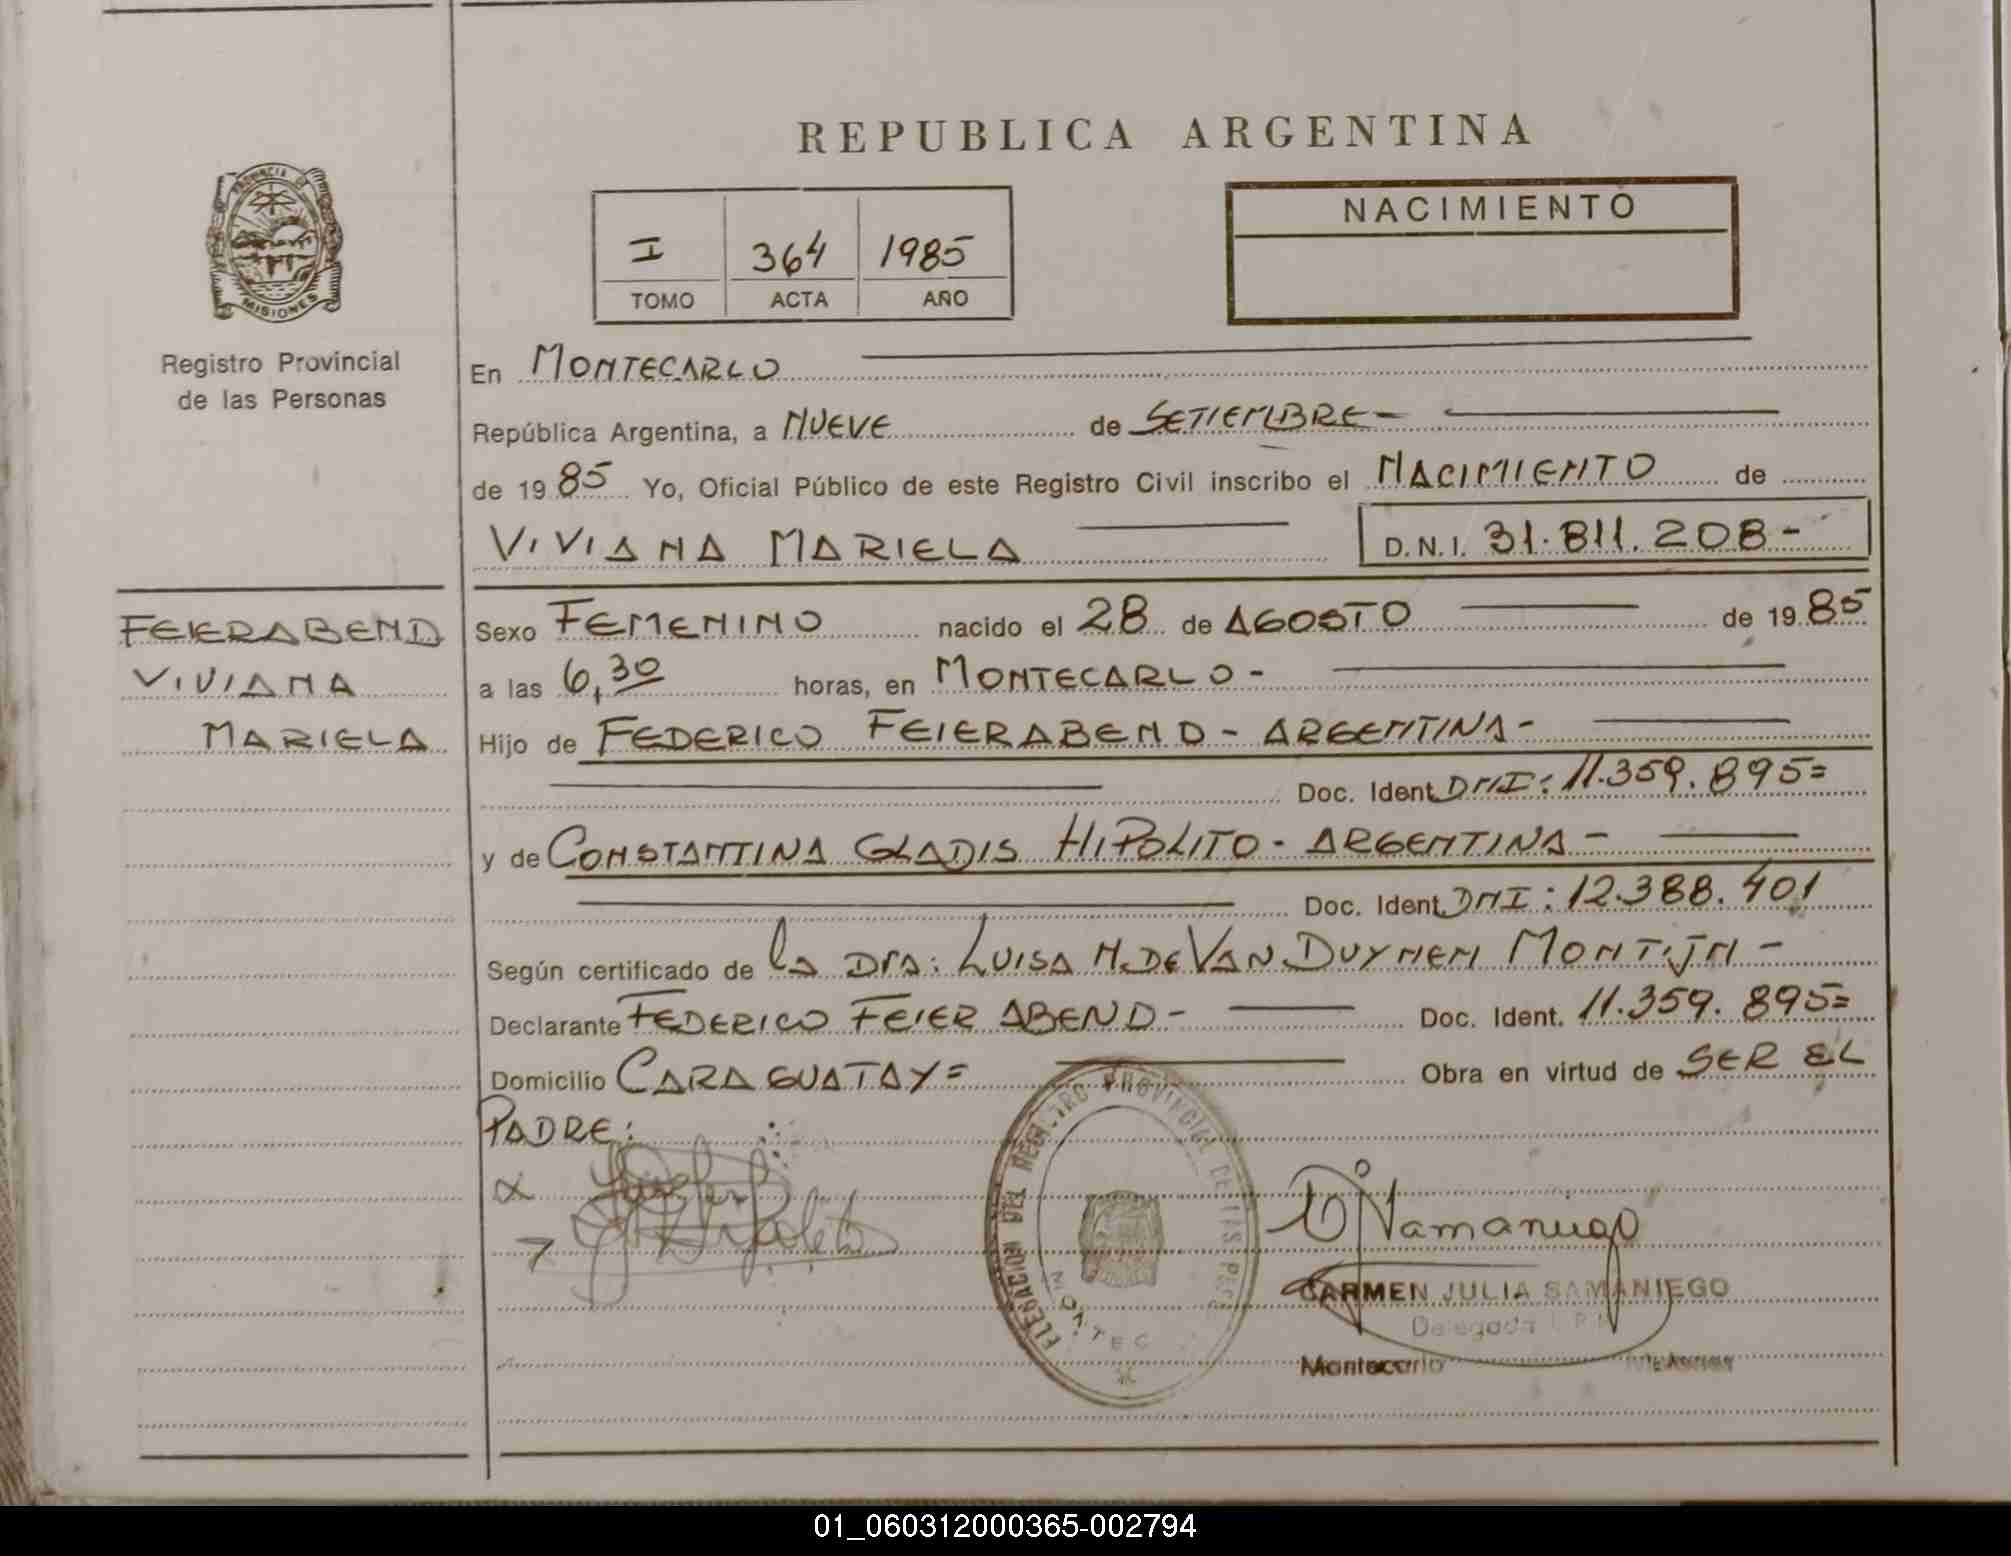 REPUBLICA ARGENTINA
PROVINCIA DE MISIONES
Registro Provincial
de las Personas
I 364 1985
TOMO ACTA AÑO
NACIMIENTO
En MONTECARLO
República Argentina, a NUEVE de SETIEMBRE-
de 1985 Yo, Oficial Público de este Registro Civil inscribo el NACIMIENTO de
VIVIANA MARIELA D.N.I. 31.811.208-
FEIERABEND
VIVIANA
MARIELA
Sexo FEMENINO nacido el 28 de AGOSTO de 1985
a las 6,30 horas, en MONTECARLO-
Hijo de FEDERICO FEIERABEND - ARGENTINA-
Doc. Ident DNI: 11.359.895=
y de CONSTANTINA GLADIS HIPOLITO - ARGENTINA-
Doc. Ident DNI: 12.388.401
Según certificado de la DRA: LUISA N. DE VAN DUYNEN MONTIJN-
Declarante FEDERICO FEIERABEND- Doc. Ident. 11.359.895=
Domicilio CARAGUATAY= Obra en virtud de SER EL
PADRE:
REGISTRO PROVINCIAL DE LAS
DEL
MONTEC
CARMEN JULIA SAMANIEGO
Delegada
Montecarlo Misiones
01_060312000365-002794